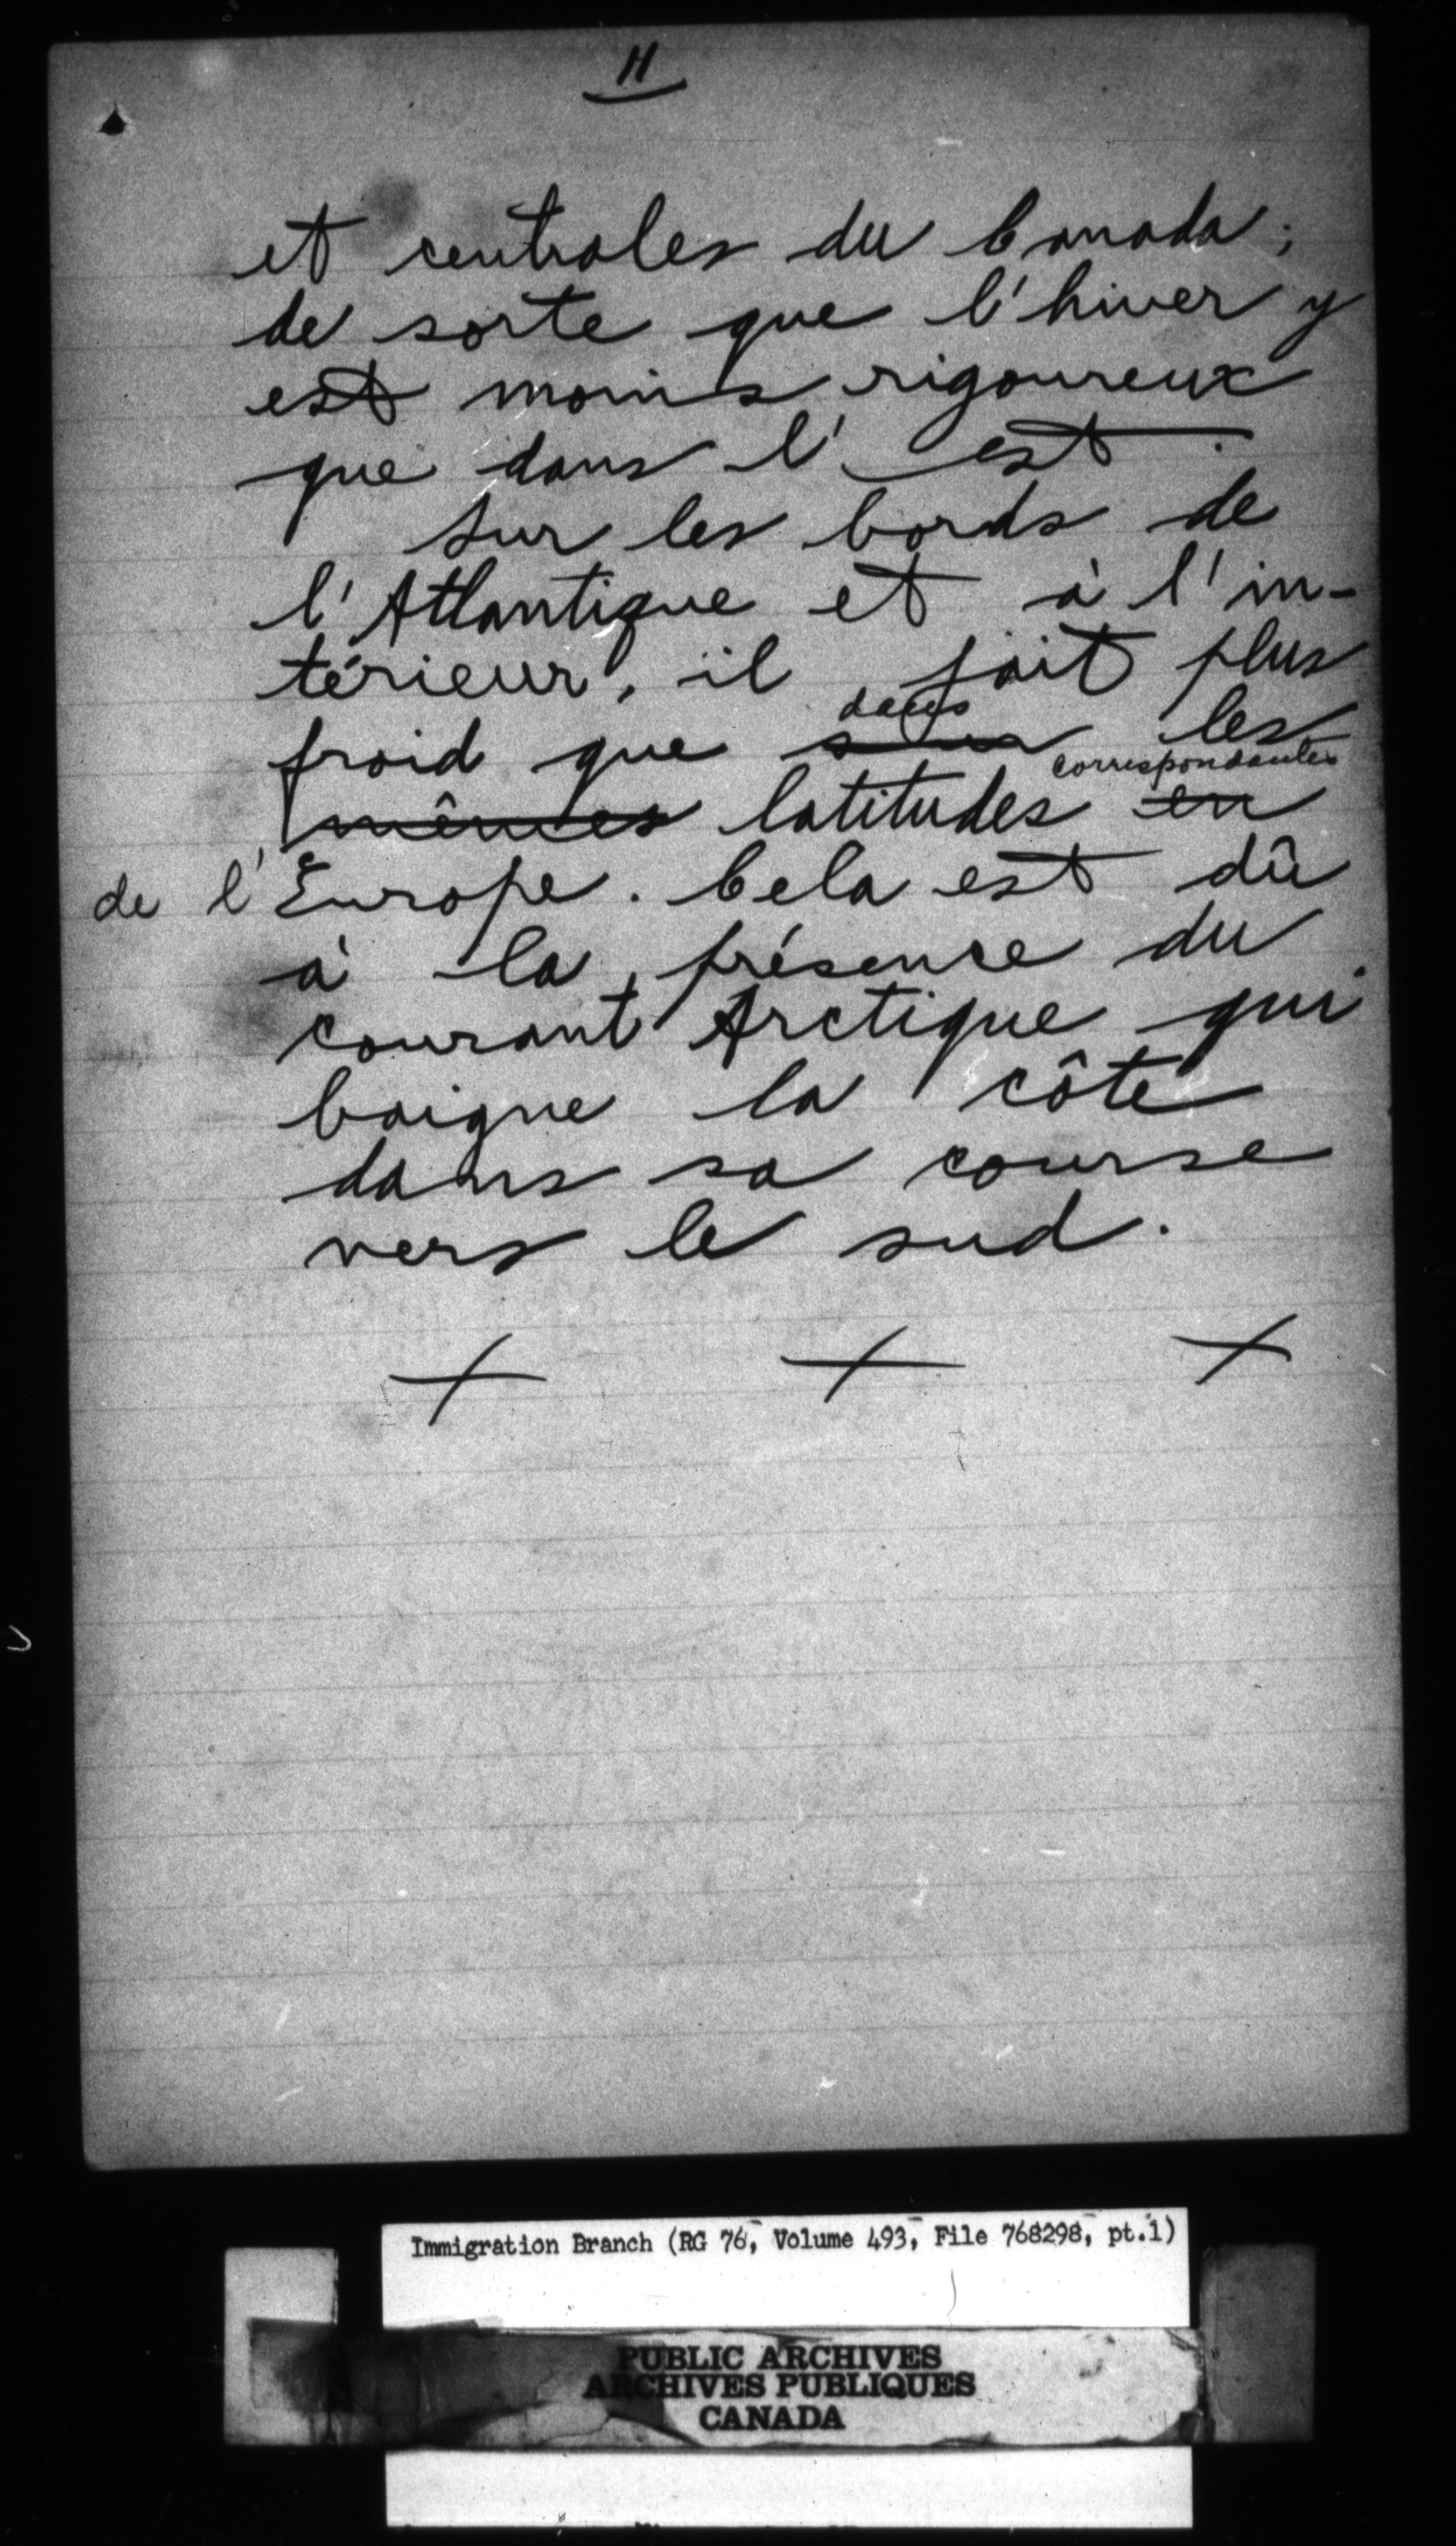 11
et centrales du Canada;
de sorte que l'hiver y
est moins rigoureux
que dans l'est.
Sur les bords de
l'Atlantique et à l'in-
térieur, il fait plus
dans
froid que sur les
correspondantes
mêmes latitudes en
de l'Europe. Cela est dû
à la présence du
courant Arctique qui
baigne la côte
dans sa course
vers le sud.
+ + +
Immigration Branch (RG 76, Volume 493, File 768298, pt.1)
PUBLIC ARCHIVES
ARCHIVES PUBLIQUES
CANADA